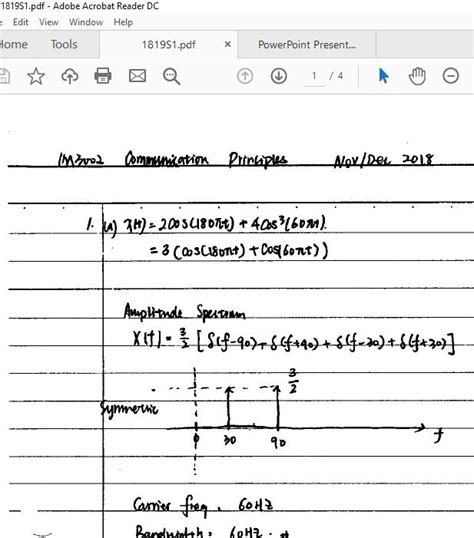 1819S1.pdf - Adobe Acrobat Reader DC
Edit View Window Help
Home Tools 1819S1.pdf × PowerPoint Present...
1 / 4
IM3002 Communication Principles Nov/Dec 2018
1. (a) x(t) = 2cos(180πt) + 4cos³(60πt).
= 3 (cos(180πt) + cos(60πt))
Amplitude Spectrum
X(f) = 3/2 [ δ(f-90) + δ(f+90) + δ(f-30) + δ(f+30) ]
3/2
Symmetric
0 30 90 f
Carrier freq. 60HZ
Bandwidth : 60HZ.